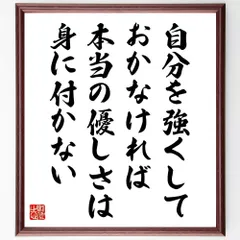 自分を強くして
おかなければ
本当の優しさは
身に付かない